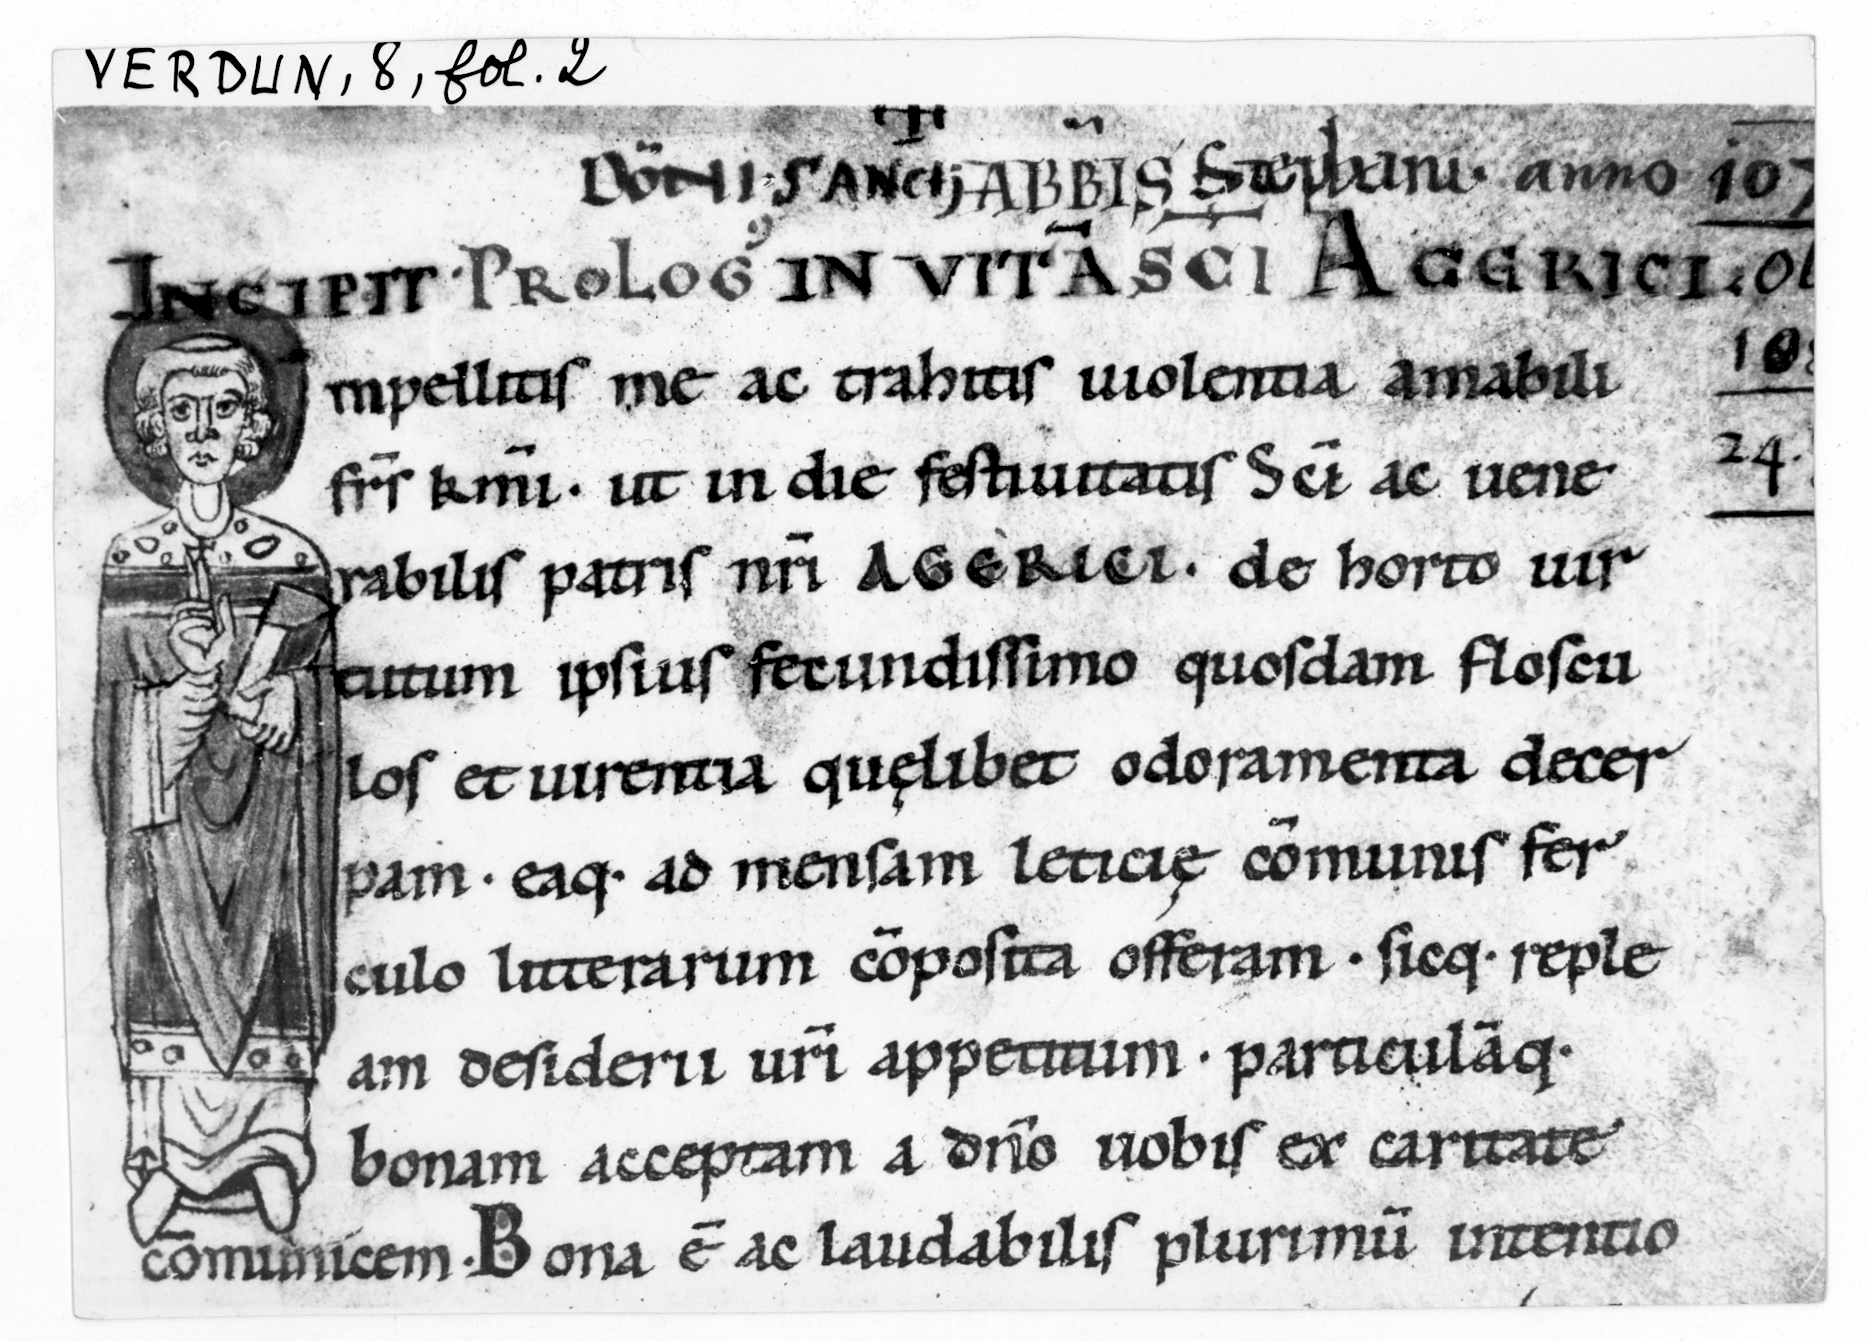 VERDUN, 8, fol. 2
ABB̄IS Stephani· anno 107
INCIPIT PROLOGꝰ IN VITĀ SCI AGERICI
mpellitis me ac trahitis uiolentia amabili
fr̄s km̄i· ut in die festiuitatis Sc̄i ac uene
rabilis patris nr̄i AGERICI· de horto uir
tutum ipsius fecundissimo quosdam floscu
los et uirentia quęlibet odoramenta decer
pam· eaq· ad mensam leticię cōmunis fer
culo litterarum cōposita offeram· sicq· reple
am desiderii ur̄i appetitum· particulāq·
bonam acceptam a dn̄o uobis ex caritate
cōmunicem· Bona ē ac laudabilis plurimū intentio
24·